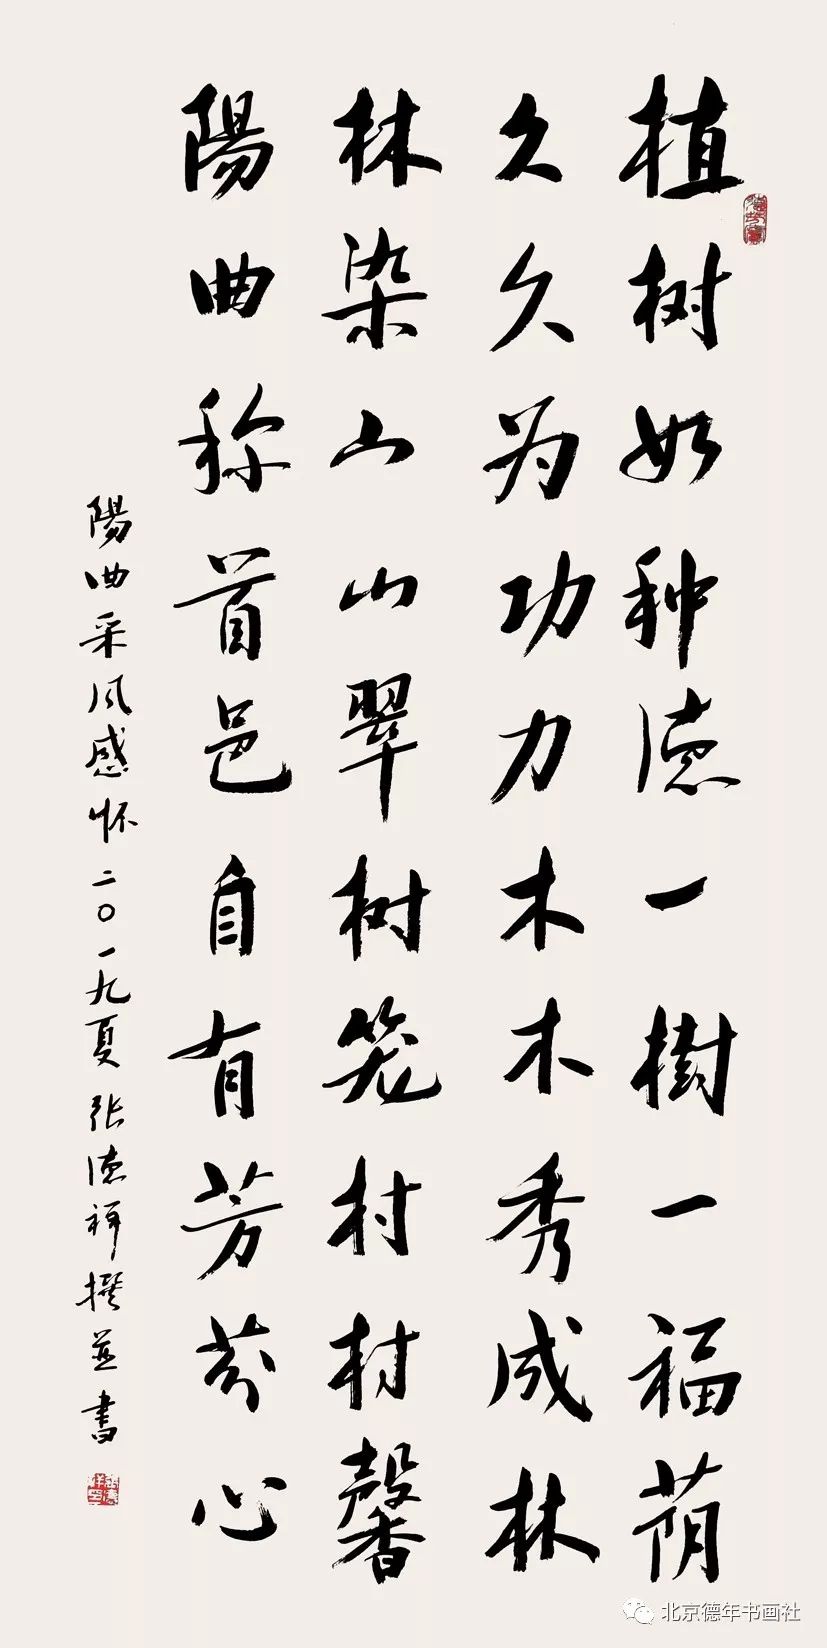 植树如种德一樹一福荫
久久为功力木木秀成林
林染山山翠树笼村村馨
陽曲称首邑自有芳芬心
陽曲采风感怀二〇一九夏张德祥撰並書
北京德年书画社